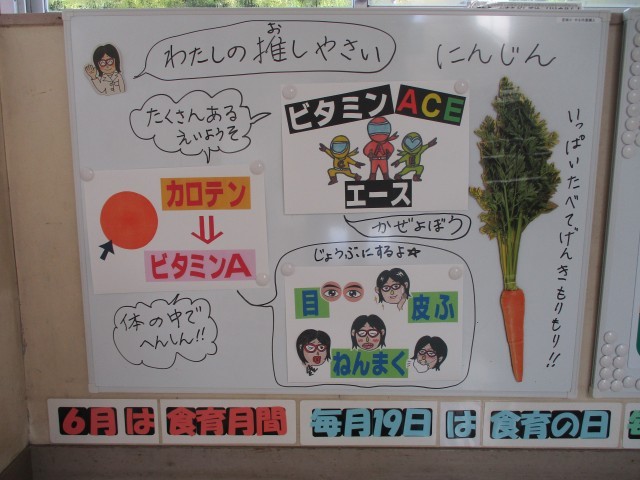 わたしの推しやさい
お
にんじん
たくさんある
えいようそ
ビタミンACE
エース
かぜよぼう
カロテン
⇓
ビタミンA
じょうぶにするよ☆
目
皮ふ
ねんまく
体の中で
へんしん!!
いっぱいたべてげんきもりもり!!
6月は食育月間
毎月19日は食育の日